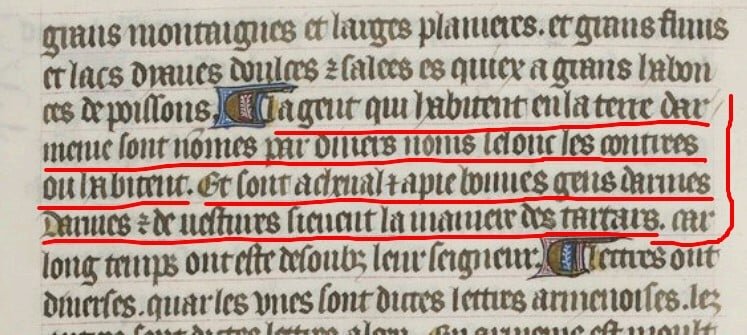 grans montaignes et larges planieres. et grans fluns
et lacs deaues doulces ⁊ salees es quiex a grans habon
ces de poissons. La gent qui habitent en la terre dar
menie sont nomes par divers noms selonc les contrees
ou habitent. Et sont a cheual ⁊ a pie bonnes gens darmes
Darmes ⁊ de uestures sieuent la maniere des tartars. car
long temps ont este desoubz leur seigneur. Lettres ont
diuerses. quar les vnes sont dictes lettres armenoises. lez